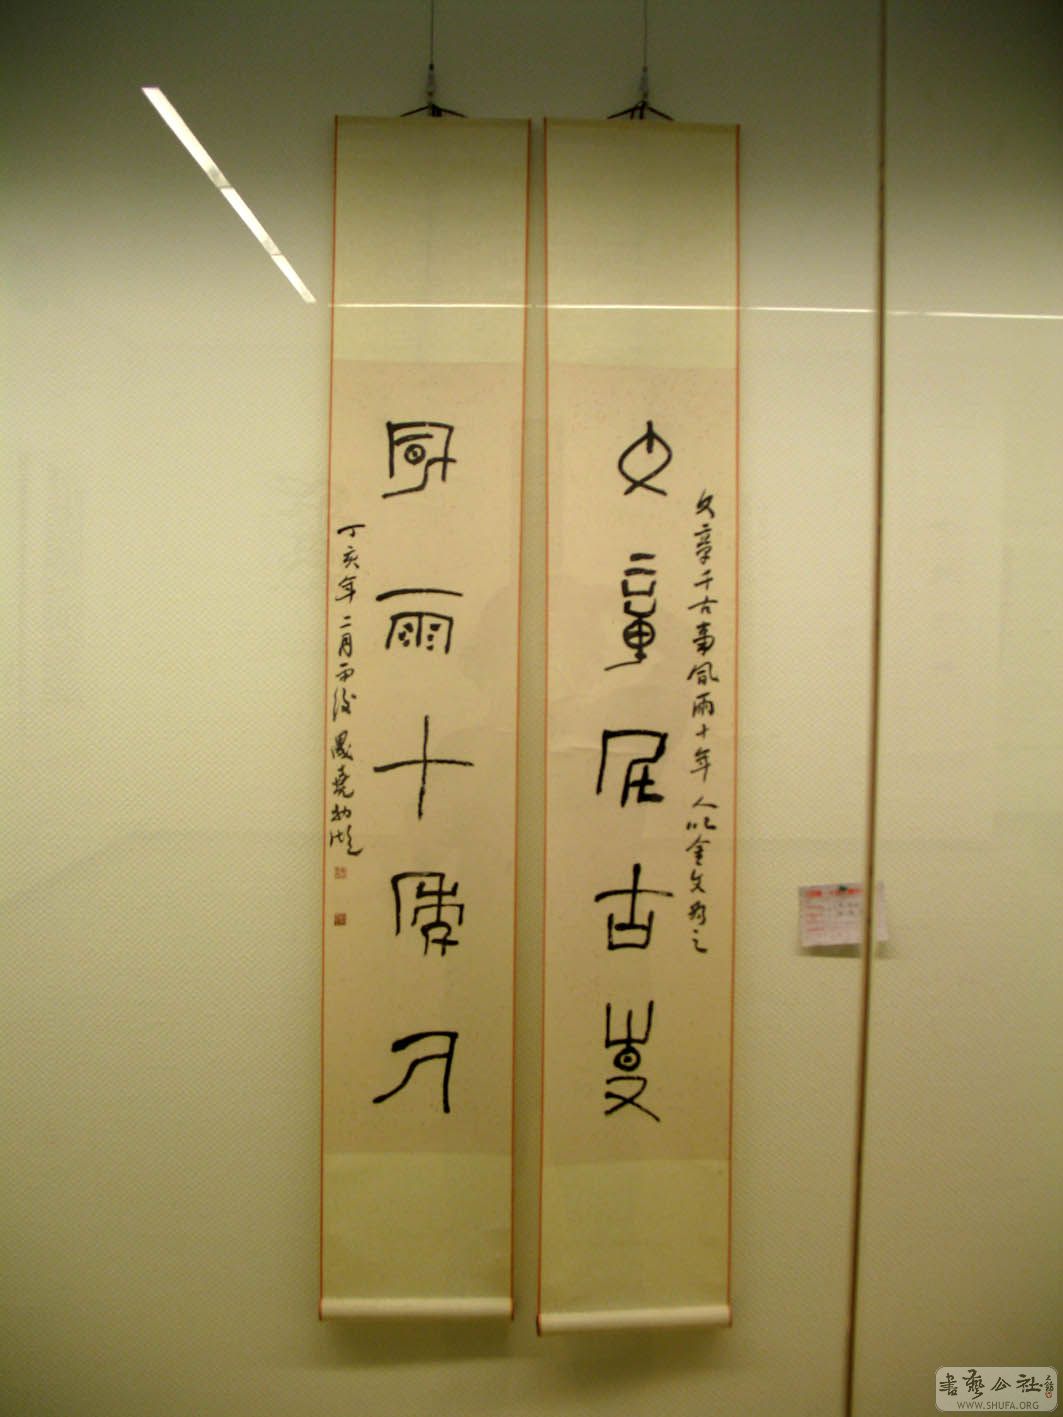 文章千古事風雨十年人以金文書之
文章千古事
風雨十年人
丁亥年二月雨後
書藝公社
WWW.SHUFA.ORG